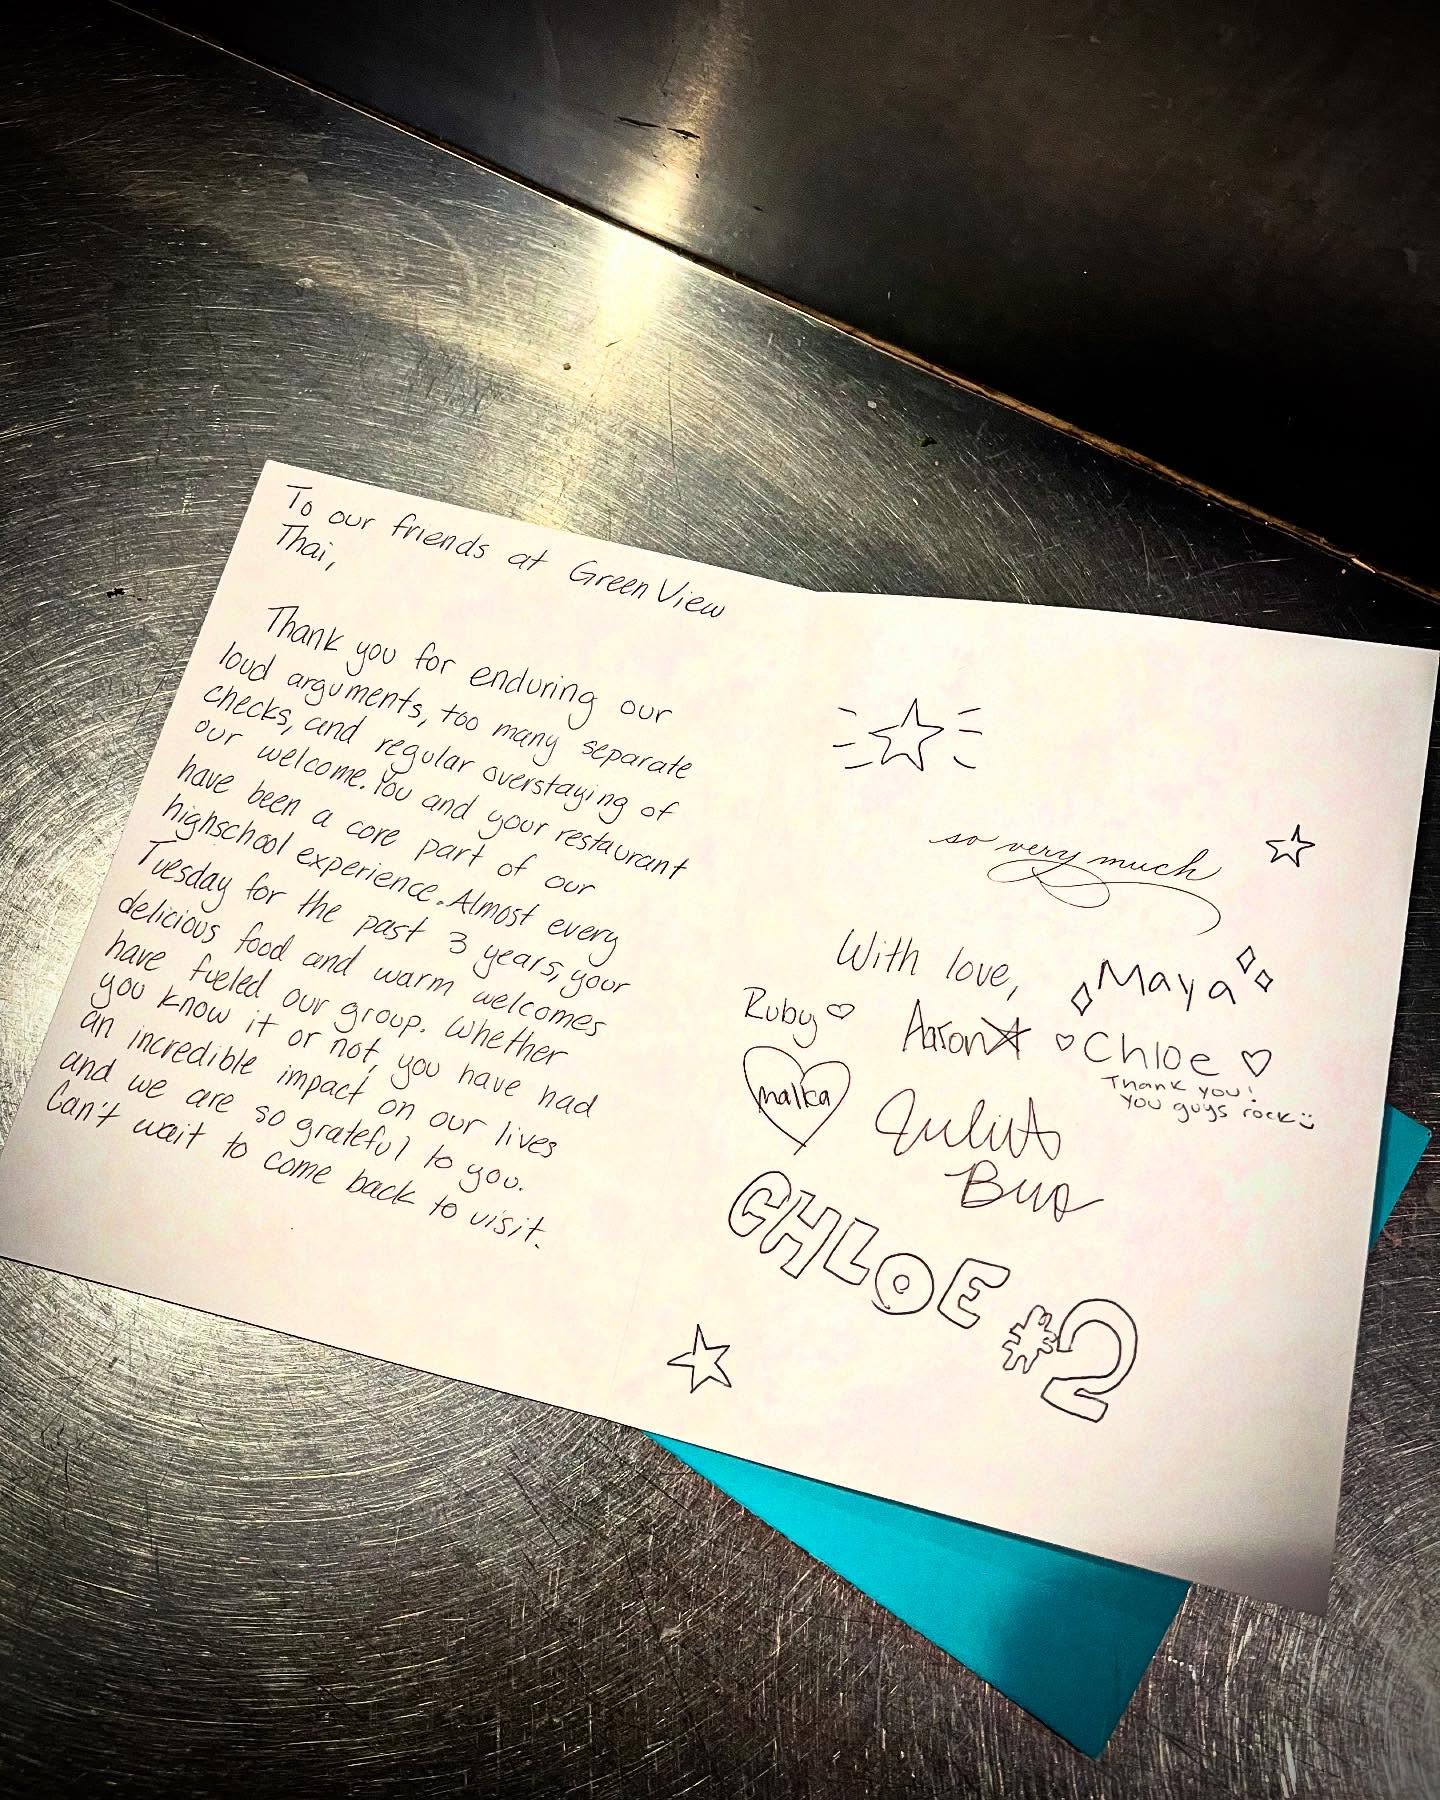 To our friends at Green View
Thai,
Thank you for enduring our
loud arguments, too many separate
checks, and regular overstaying of
our welcome. You and your restaurant
have been a core part of our
highschool experience. Almost every
Tuesday for the past 3 years, your
delicious food and warm welcomes
have fueled our group. Whether
you know it or not, you have had
an incredible impact on our lives
and we are so grateful to you.
Can't wait to come back to visit.
so very much
With love,
Maya
Ruby
Aaron
Chloe
Thank you!
You guys rock
malka
Juliet
CHLOE #2